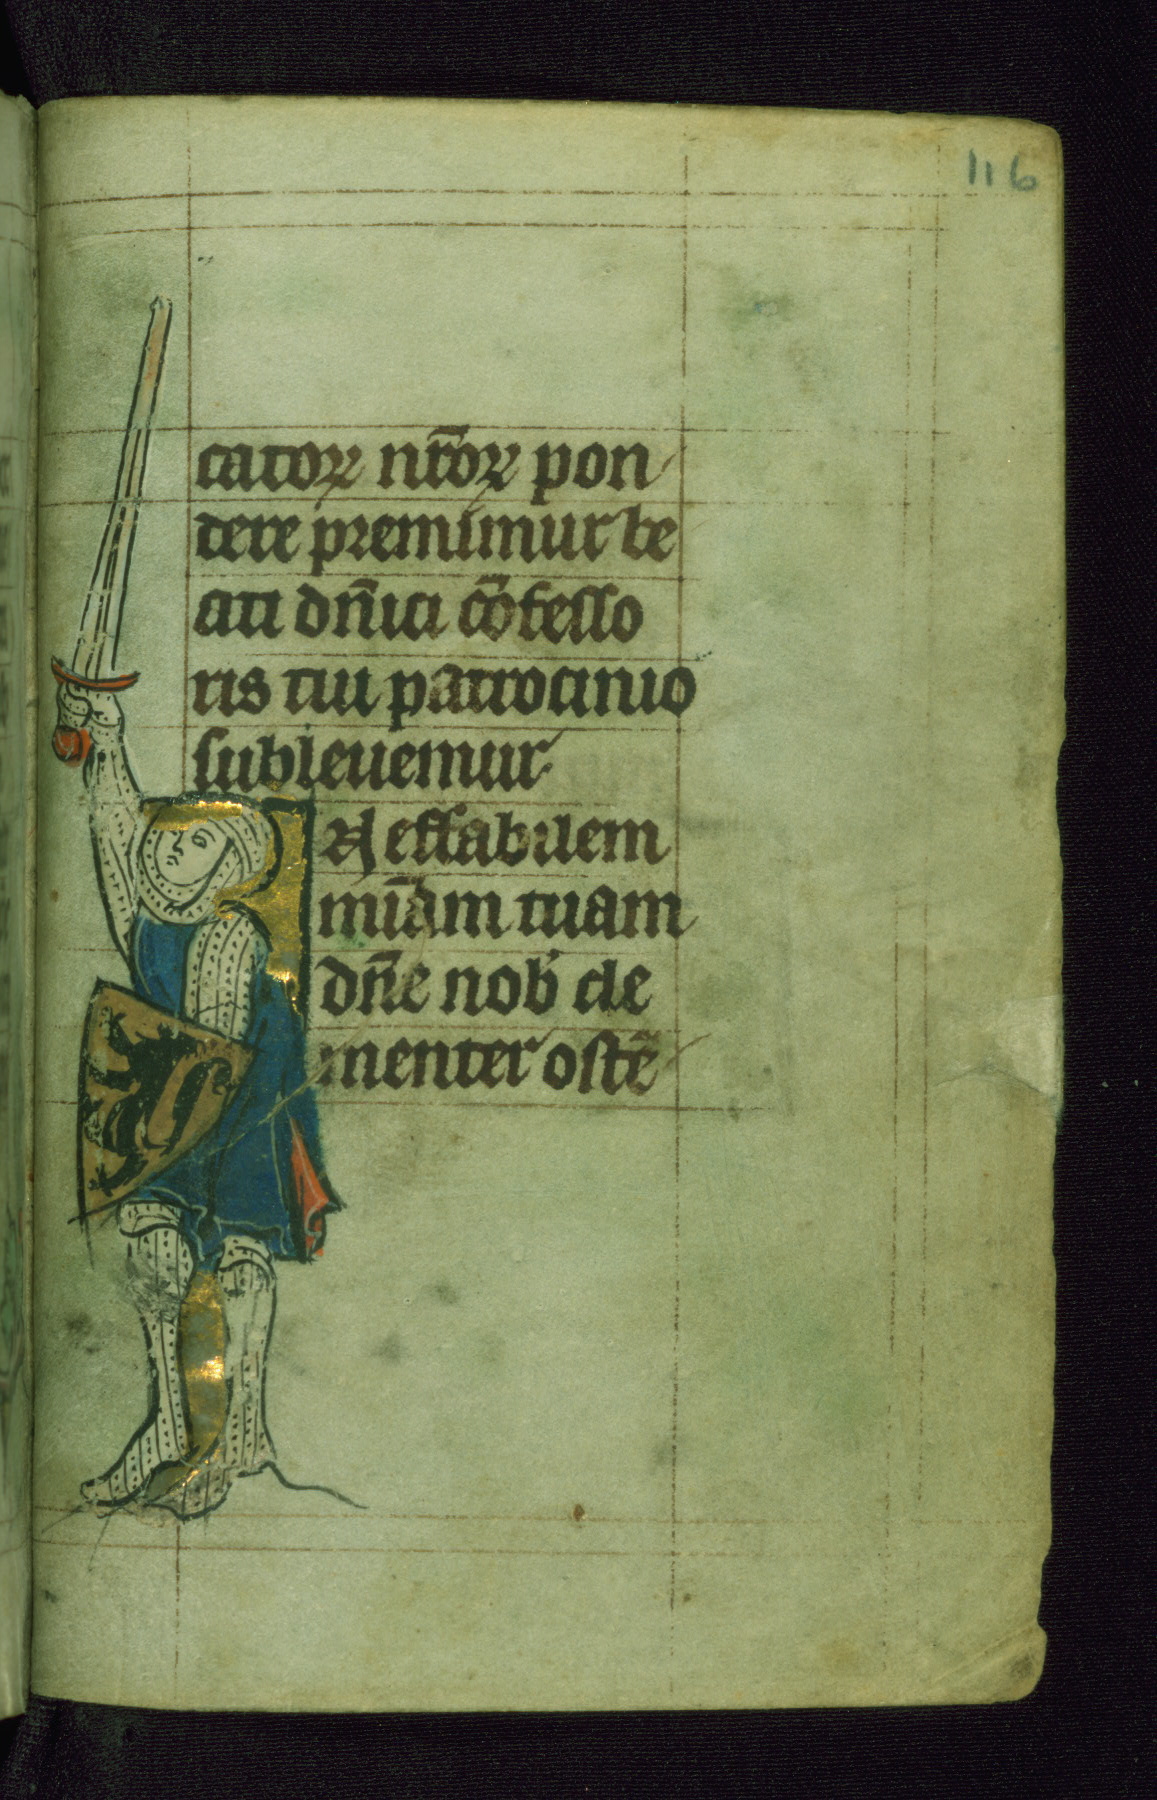 116
catoꝝ nr̄oꝝ pon
dere premimur be
ati dn̄ici cōfesso
ris tui patrocinio
subleuemur
Neffabilem
mīam tuam
dn̄e nob' cle
menter ostē